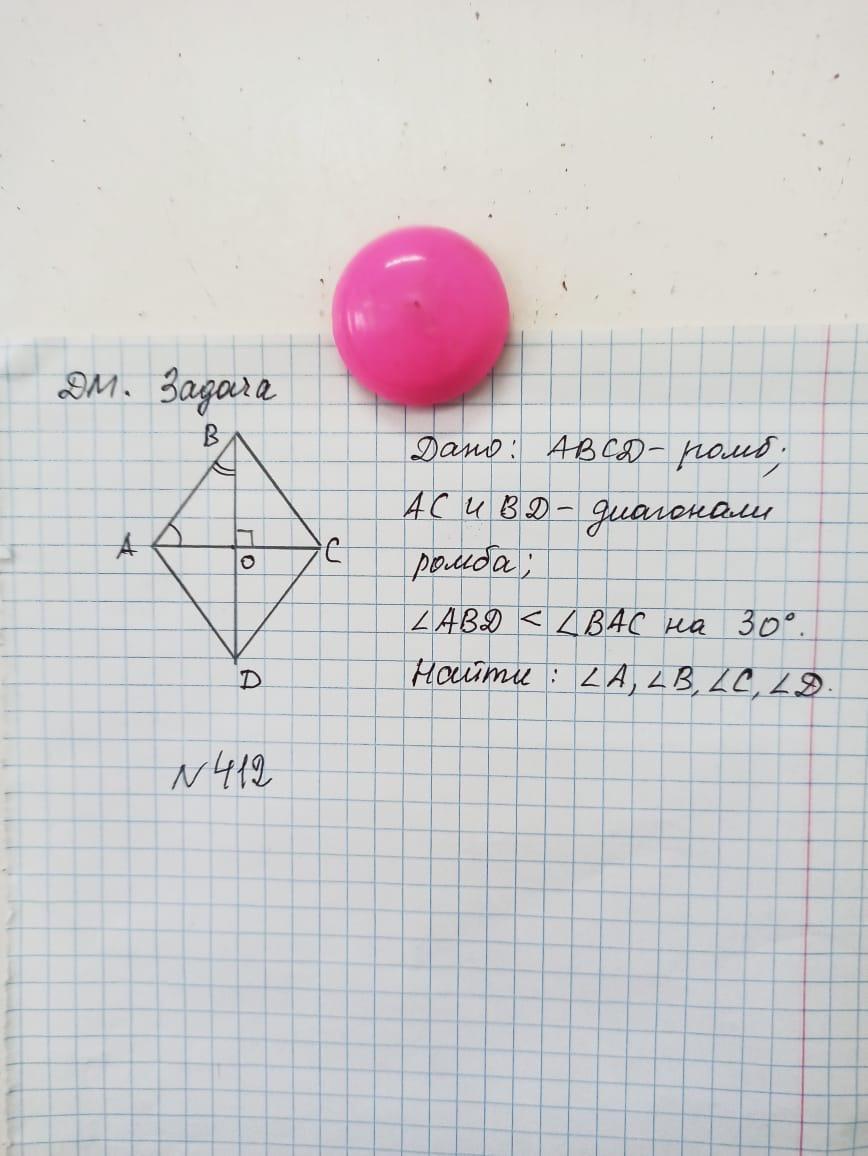 ДМ. Задача
B
A
O
C
D
Дано: ABCD - ромб;
AC и BD - диагонали
ромба;
∠ABD < ∠BAC на 30°.
Найти: ∠A, ∠B, ∠C, ∠D.
N 412